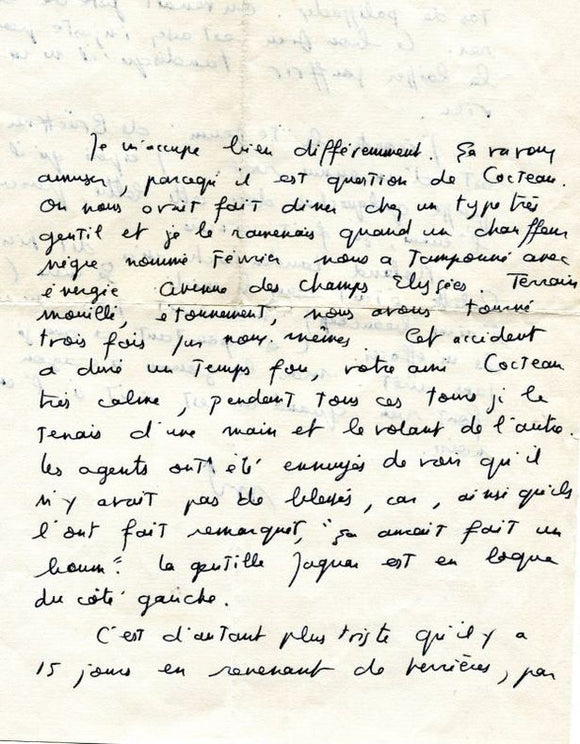 Je m'occupe bien différemment. Ça va vous
amuser parcequ'il est question de Cocteau.
On nous avait fait diner chez un type très
gentil et je le ramenais quand un chauffeur
nègre nommé Février nous a tamponné avec
énergie Avenue des champs Elysées. Terrain
mouillé, étonnement, nous avons tourné
trois fois sur nous-mêmes. Cet accident
a duré un temps fou, votre ami Cocteau
très calme, pendant tous ces tours je le
tenais d'une main et le volant de l'autre.
Les agents ont été ennuyés de voir qu'il
n'y avait pas de blessés, car, ainsi qu'ils
l'ont fait remarquer, "ça aurait fait un
boum". La gentille Jaguar est en loque
du côté gauche.
C'est d'autant plus triste qu'il y a
15 jours en revenant de Verrières, par